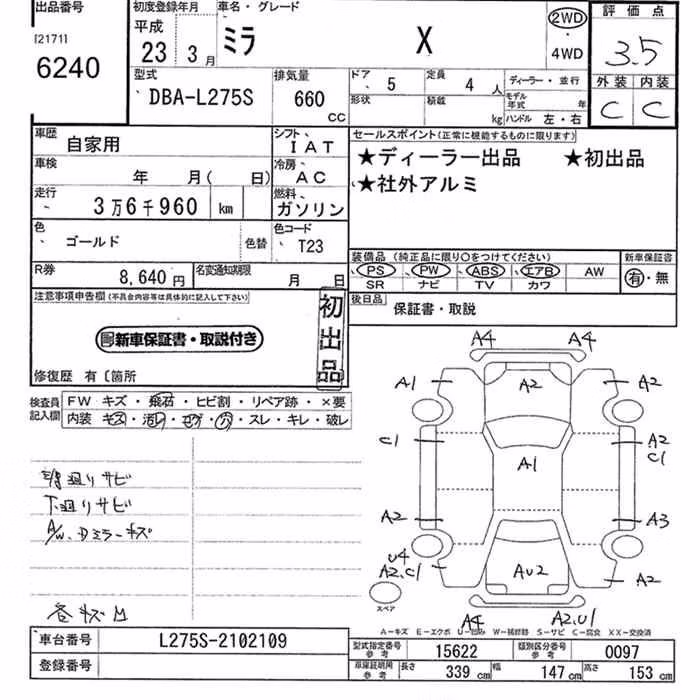 出品番号
[2171]
6240
初度登録年月
平成
23 3月
車名・グレード
ミラ X
2WD
・
4WD
評価点
3.5
外装 内装
C C
型式
DBA-L275S
排気量
660
CC
ドア 5
形状
定員 4 人
積載 kg
ディーラー・並行
モデル年式 年
ハンドル 左・右
車歴 自家用
シフト IAT
車検 年 月( 日)
冷房 AC
走行 3万6千960 km
燃料 ガソリン
色 ゴールド 色替
色コード T23
R券 8,640円
名変通知期限 月 日
セールスポイント(正常に機能するものに限ります)
★ディーラー出品 ★初出品
★社外アルミ
装備品 (純正品に限り○をつけてください)
PS PW ABS エアB AW
SR ナビ TV カワ
新車保証書
有・無
後日品 保証書・取説
注意事項申告欄(不具合内容等は具体的に記入して下さい)
新車保証書・取説付き
初出品
修復歴 有〔箇所
検査員記入欄
FW キズ・飛石・ヒビ割・リペア跡・×要
内装 キズ・汚レ・コゲ・穴・スレ・キレ・破レ
廻りサビ
下廻りサビ
A/W、Dミラーキズ
各キズ凹
A4 A4
A1 A2 A2
C1 A1 A2
C1
A2 A3
U4
A2,C1 AU2 A2
スペア
A4 A2,U1
A－キズ E－エクボ U－凹み W－補修跡 S－サビ C－腐食 XX－交換済
車台番号 L275S-2102109
登録番号
型式指定番号 参考 15622
類別区分番号 参考 0097
車庫証明用 参考 長さ 339 cm 幅 147 cm 高さ 153 cm